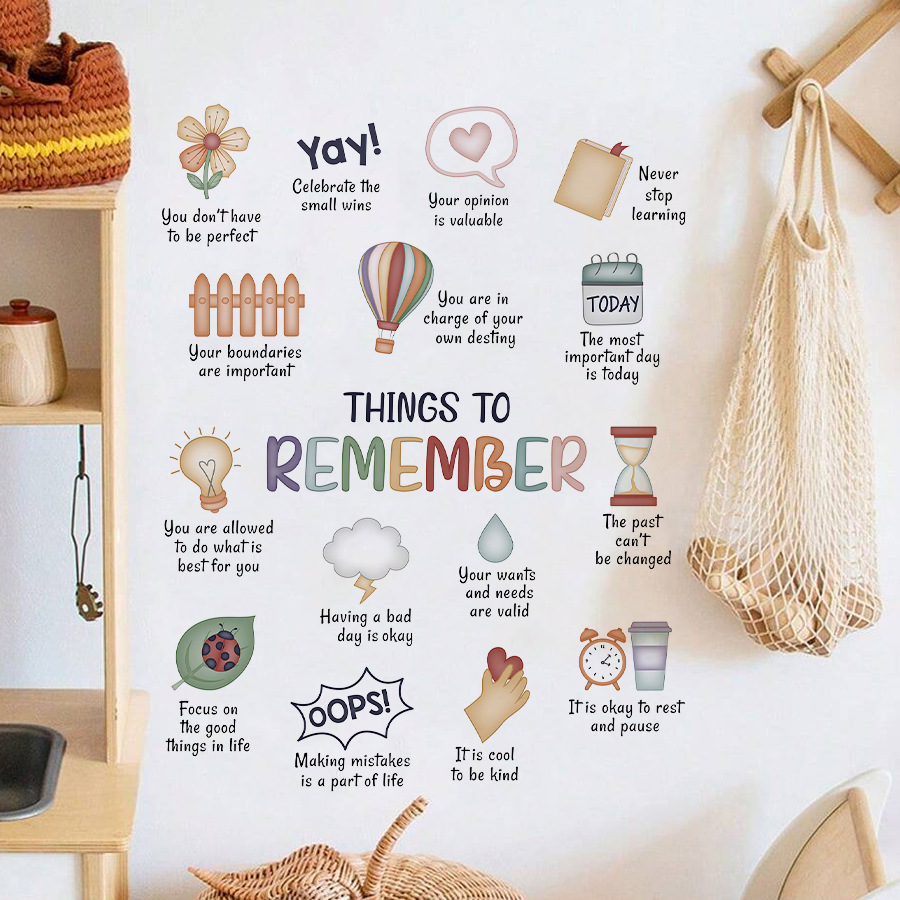 You don't have
to be perfect
Yay!
Celebrate the
small wins
Your opinion
is valuable
Never
stop
learning
Your boundaries
are important
You are in
charge of your
own destiny
TODAY
The most
important day
is today
THINGS TO
REMEMBER
You are allowed
to do what is
best for you
Having a bad
day is okay
Your wants
and needs
are valid
The past
can't
be changed
Focus on
the good
things in life
OOPS!
Making mistakes
is a part of life
It is cool
to be kind
It is okay to rest
and pause